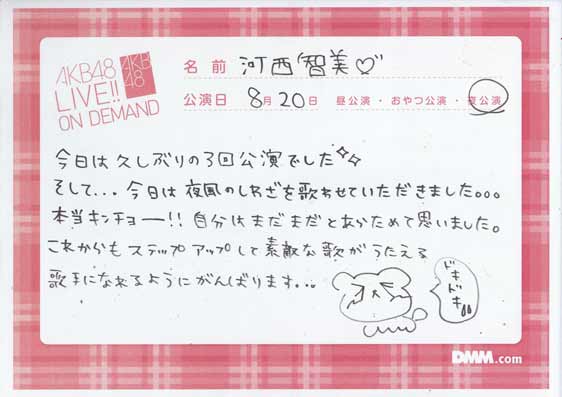 AKB48
LIVE!!
ON DEMAND
AKB
48
名前 河西智美♡
公演日 8月20日 昼公演・おやつ公演・夜公演
今日は久しぶりの3回公演でした
そして...今日は夜風のしわざを歌わせていただきました。。。
本当キンチョー!!自分はまだまだとあらためて思いました。
これからもステップアップして素敵な歌がうたえる
歌手になれるようにがんばります...
ドキドキ
DMM.com